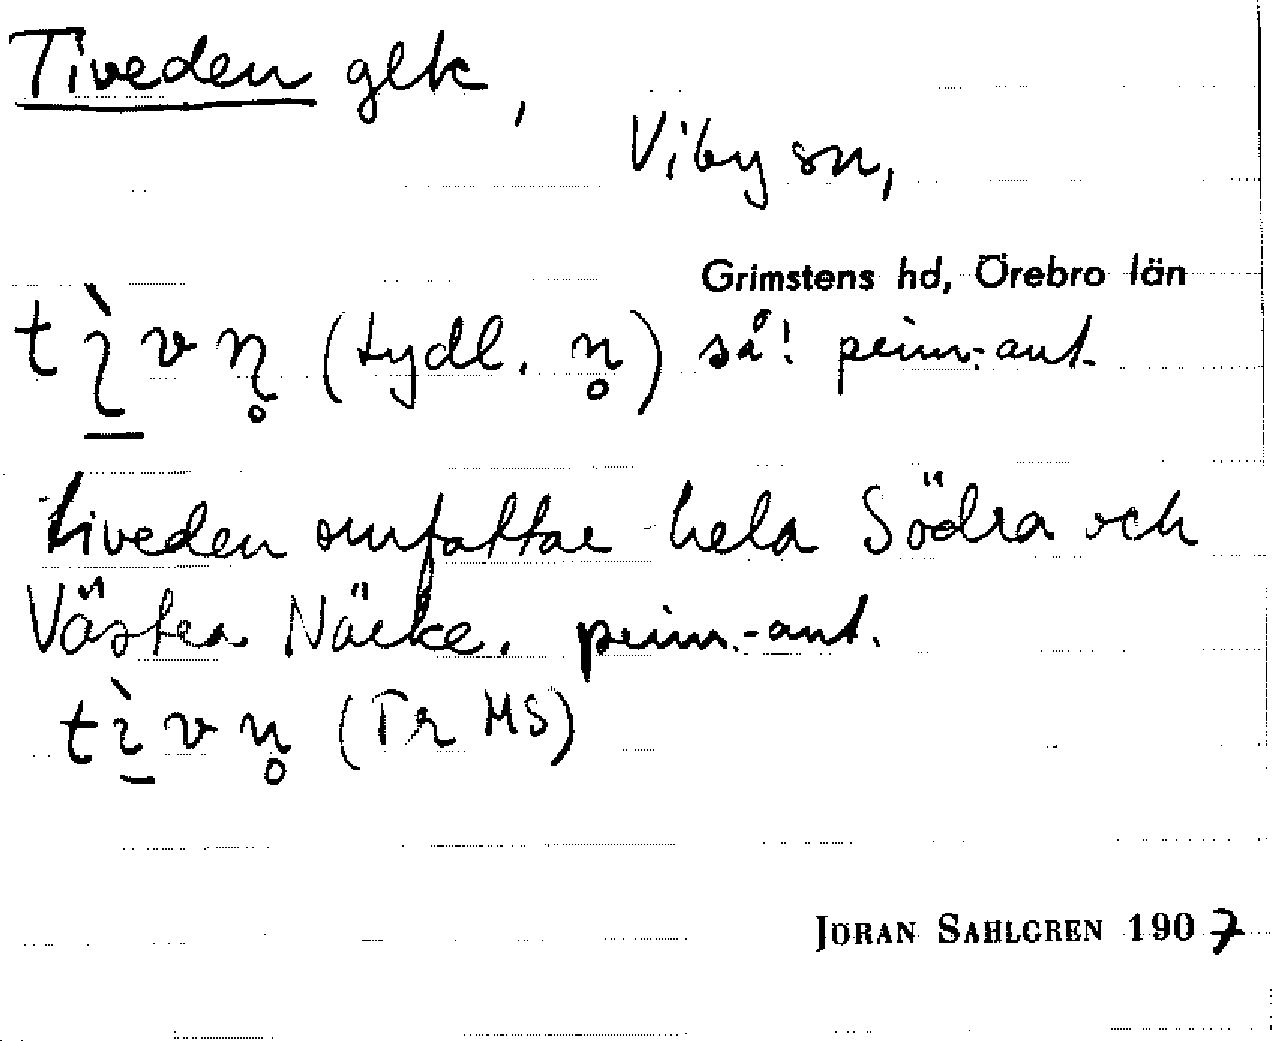 Tiveden glk,
Viby sn,
Grimstens hd, Örebro län
tì̱vn̥ (tydl. n̥) så! prim.-ant.
Tiveden omfattar hela Södra och
Västra Närke. prim.-ant.
tì̱vn̥ (Tr MS)
JÖRAN SAHLGREN 1907